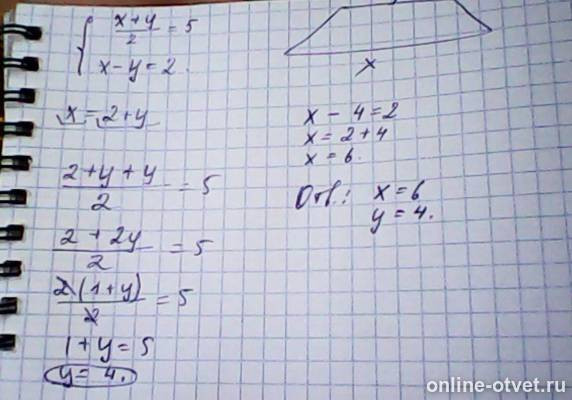 x+y/2 = 5
x-y=2.
x=2+y
2+y+y/2 = 5
2+2y/2 = 5
2(1+y)/2 = 5
1+y=5
y=4.
x
x-4=2
x=2+4
x=6.
Отв.: x=6
y=4.
online-otvet.ru